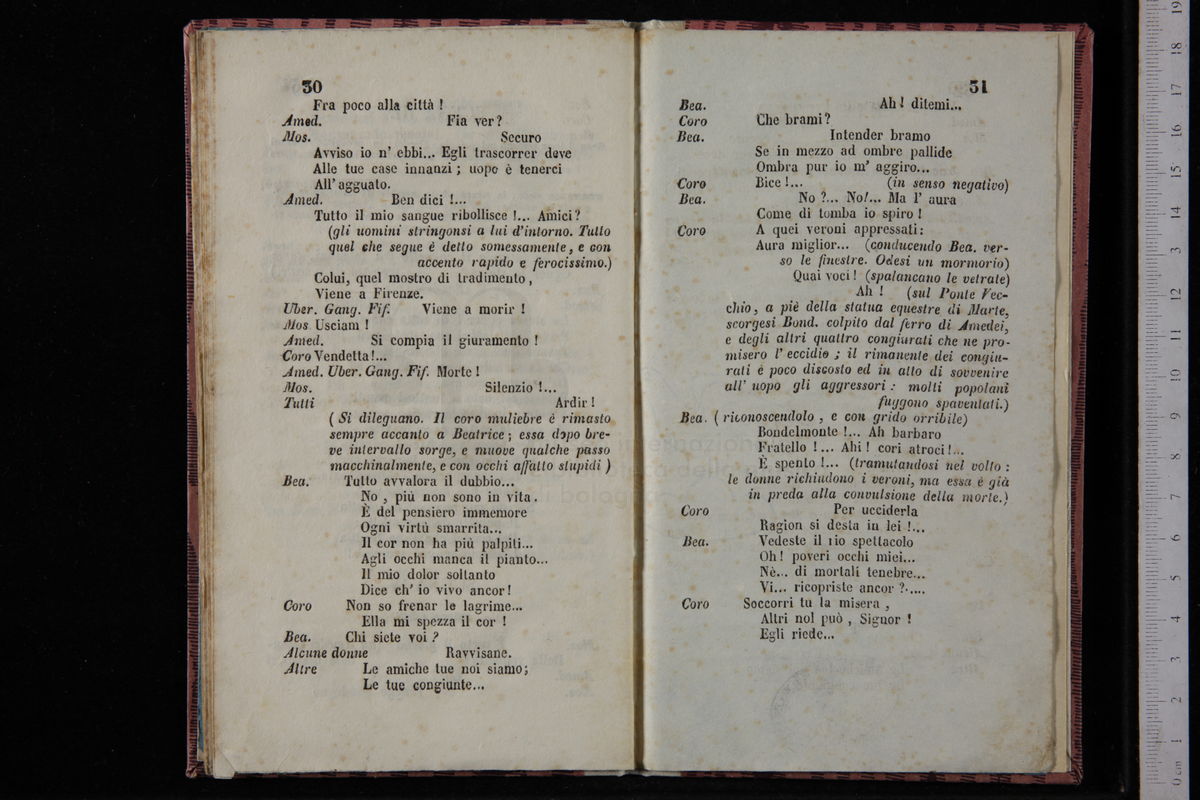 30
Fra poco alla città !
Amed. Fia ver?
Mos. Securo
Avviso io n' ebbi... Egli trascorrer deve
Alle tue case innanzi ; uopo è tenerci
All' agguato.
Amed. Ben dici !...
Tutto il mio sangue ribollisce !... Amici?
(gli uomini stringonsi a lui d'intorno. Tutto
quel che segue è detto somessamente, e con
accento rapido e ferocissimo.)
Colui, quel mostro di tradimento,
Viene a Firenze.
Uber. Gang. Fif. Viene a morir !
Mos. Usciam !
Amed. Si compia il giuramento !
Coro Vendetta!...
Amed. Uber. Gang. Fif. Morte !
Mos. Silenzio !...
Tutti Ardir !
( Si dileguano. Il coro muliebre è rimasto
sempre accanto a Beatrice ; essa dopo bre-
ve intervallo sorge, e muove qualche passo
macchinalmente, e con occhi affatto stupidi )
Bea. Tutto avvalora il dubbio...
No , più non sono in vita.
È del pensiero immemore
Ogni virtù smarrita...
Il cor non ha più palpiti...
Agli occhi manca il pianto...
Il mio dolor soltanto
Dice ch' io vivo ancor!
Coro Non so frenar le lagrime...
Ella mi spezza il cor !
Bea. Chi siete voi ?
Alcune donne Ravvisane.
Altre Le amiche tue noi siamo;
Le tue congiunte...
31
Bea. Ah ! ditemi...
Coro Che brami?
Bea. Intender bramo
Se in mezzo ad ombre pallide
Ombra pur io m' aggiro...
Coro Bice !... (in senso negativo)
Bea. No ?... No!... Ma l' aura
Come di tomba io spiro !
Coro A quei veroni appressati:
Aura miglior... (conducendo Bea. ver-
so le finestre. Odesi un mormorio)
Quai voci! (spalancano le vetrate)
Ah ! (sul Ponte Vec-
chio, a piè della statua equestre di Marte,
scorgesi Bond. colpito dal ferro di Amedei,
e degli altri quattro congiurati che ne pro-
misero l' eccidio ; il rimanente dei congiu-
rati è poco discosto ed in atto di sovvenire
all' uopo gli aggressori : molti popolani
fuggono spaventati.)
Bea. ( riconoscendolo , e con grido orribile)
Bondelmonte !... Ah barbaro
Fratello !... Ahi ! cori atroci!...
È spento !... (tramutandosi nel volto :
le donne richiudono i veroni, ma essa è già
in preda alla convulsione della morte.)
Coro Per ucciderla
Ragion si desta in lei !...
Bea. Vedeste il rio spettacolo
Oh! poveri occhi miei...
Nè... di mortali tenebre...
Vi... ricopriste ancor ?.....
Coro Soccorri tu la misera ,
Altri nol può , Signor !
Egli riede...